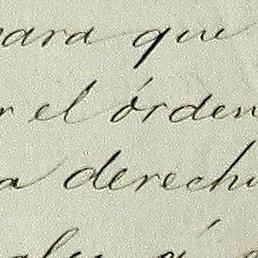 para que
r el órden
a derech